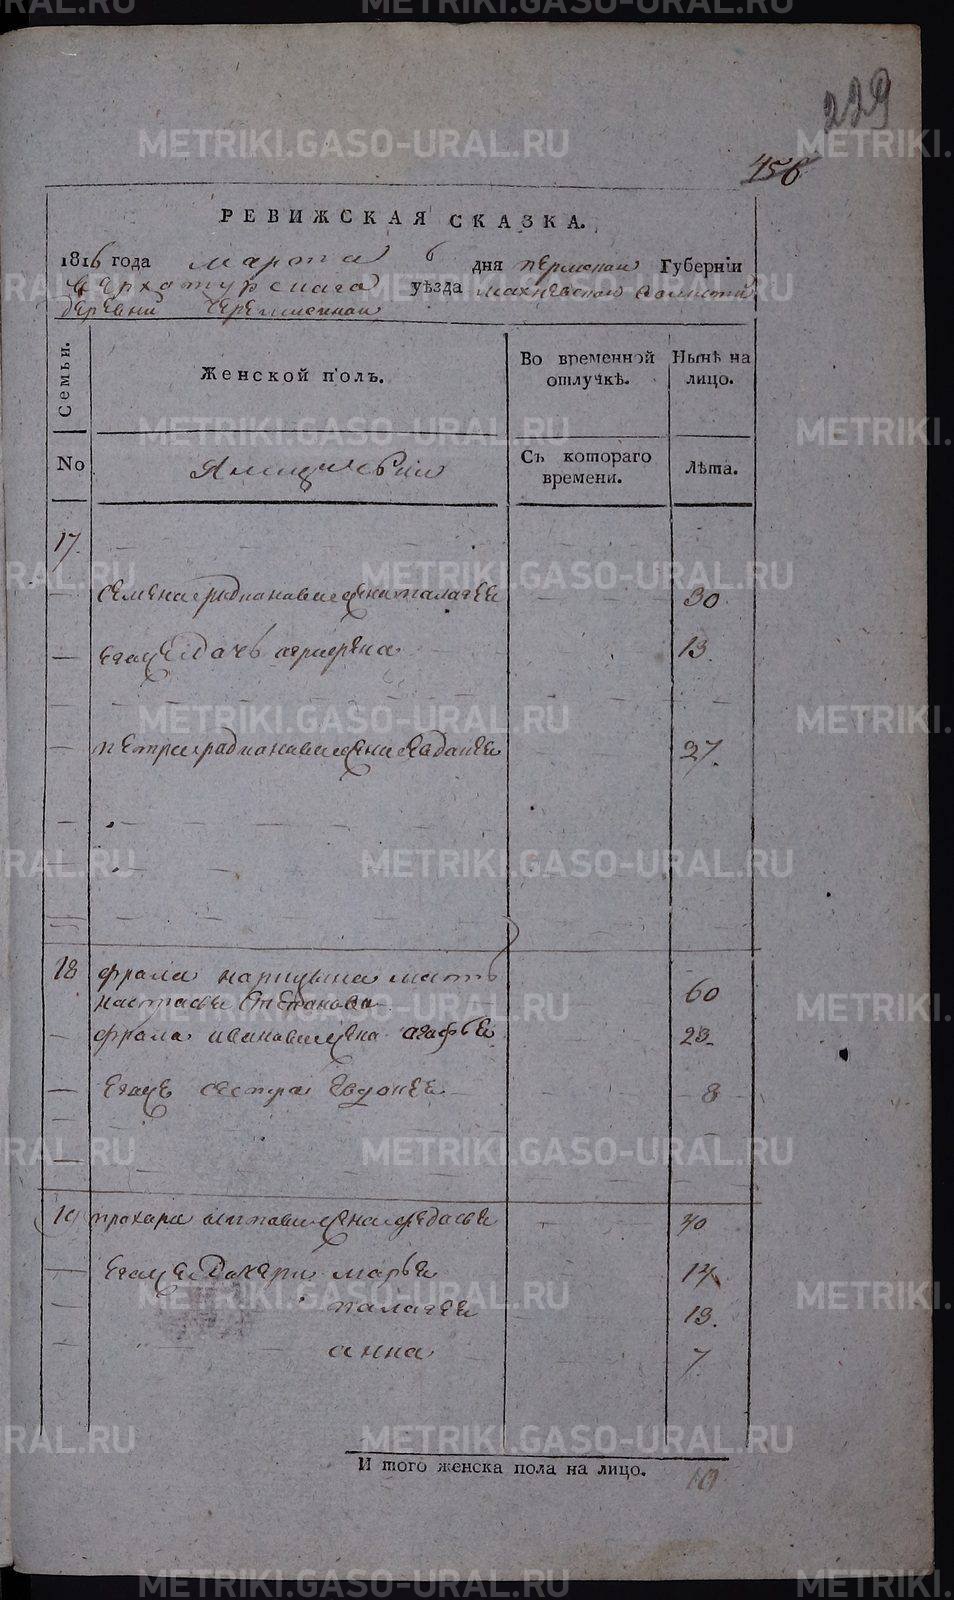 229
456
РЕВИЖСКАЯ СКАЗКА.
1816 года марта 6 дня пермскои Губерніи
верхотурскаго уѣзда махневскои волости
деревни черемисинои
Семьи.
Женской полъ.
Во временной отлучкѣ.
Нынѣ на лицо.
No
Съ котораго времени.
Лѣта.
17.
семена радионава жена палагея 30
егаже дочь аграфена 13.
петра радионава жена евдакея 27.
18 фрала мать
настасья степанова 60
фрала иванава жена агафья 23
егаже сестра евдокея 8
19 прохара жена федосья 40
егаже дочери марья 17
палагея 13.
анна 7
И того женска пола на лицо. 10
METRIKI.GASO-URAL.RU